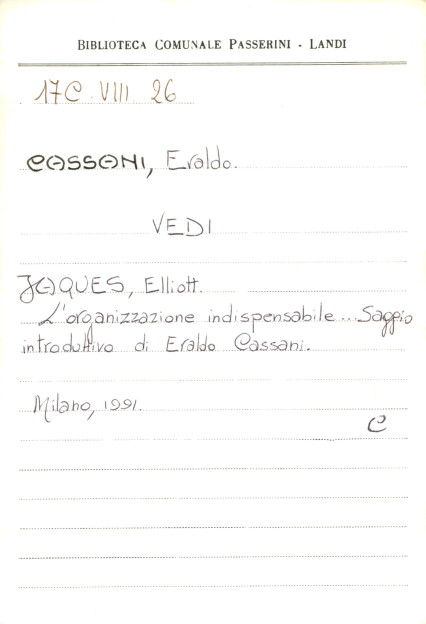 BIBLIOTECA COMUNALE PASSERINI - LANDI
17C VIII 26
CASSANI, Eraldo.
VEDI
JAQUES, Elliott.
L'organizzazione indispensabile... Saggio
introduttivo di Eraldo Cassani.
Milano, 1991.
C